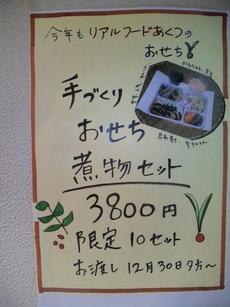 今年も リアルフードあくつの
おせち
手づくり
おせち
煮物セット
3800円
限定10セット
お渡し 12月30日夕方～